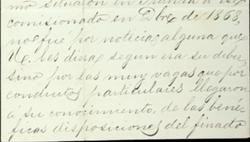 comisionado en Obre de 1868,
no fue por noticia alguna que
Ve. les diera segun era su deber
sino por las muy vagas que por
conductos particulares llegaron
á su conocimiento, de las bené
ficas disposiciones del finado